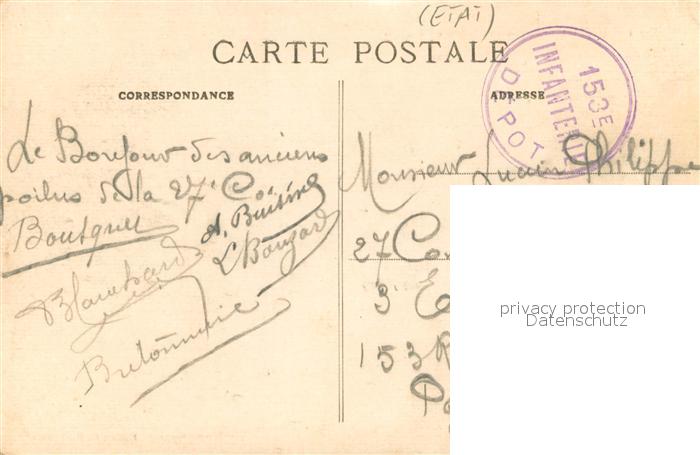 (ETAT)
CARTE POSTALE
CORRESPONDANCE
ADRESSE
153E
INFANTERIE
DEPOT
Le Bonjour des anciens
poilus de la 27e Cie
Bousquet
A. Buisine
L Bouzard
Blanchard
Bretonnerie
Monsieur Lucien Philippe
27 Co
3 E
153 R
privacy protection
Datenschutz